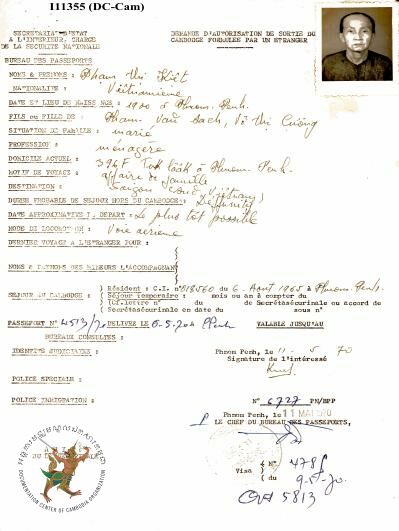 I11355 (DC-Cam)
SECRETARIAT D'ETAT
A L'INTERIEUR, CHARGE
DE LA SECURITE NATIONALE
DEMANDE D'AUTORISATION DE SORTIE DU
CAMBODGE FORMULEE PAR UN ETRANGER
BUREAU DES PASSEPORTS
NOMS & PRENOMS : Pham Thi Kiêt
NATIONALITE : Viêtnamienne
DATE ET LIEU DE NAISSANCE : 1900 à Phnom-Penh.
FILS ou FILLE DE : Pham Van Sach, Võ Thi Cuông
SITUATION DE FAMILLE : marié
PROFESSION : ménagère
DOMICILE ACTUEL : 396F Tuk Lâăk à Phnom-Penh.
MOTIF DE VOYAGE : affaire de famille
DESTINATION : Saigon (Sud Viêtnam)
DUREE PROBABLE DE SEJOUR HORS DU CAMBODGE : Définitif
DATE APPROXIMATIVE DE DEPART : Le plus tôt possible
MODE DE LOCOMOTION : Voie aérienne
DERNIER VOYAGE A L'ETRANGER POUR :
NOMS & PRENOMS DES MINEURS L'ACCOMPAGNANT
SEJOUR AU CAMBODGE : Résident : C.I. n° 518560 du 6 Août 1965 à Phnom-Penh.
Séjour temporaire : mois ou an à compter du
Cf.lettre n° du de Secrétaséurinale ou accord de
Secrétaséurinale en date du sous n°
PASSEPORT N° 4513/70 DELIVRE LE 6-5-70 à PPenh VALABLE JUSQU'AU
BUREAUX CONSULTES :
IDENTITE JUDICIAIRE :
Phnom Penh, le 11 - 5 70
Signature de l'intéressé
POLICE SPECIALE :
POLICE IMMIGRATION :
N° 6727 PN/BPP
Phnom Penh, le 11 MAI 1970
LE CHEF DU BUREAU DES PASSEPORTS,
Visa
N° 478
du 9-5-70.
5813
DOCUMENTATION CENTER OF CAMBODIA ORGANIZATION